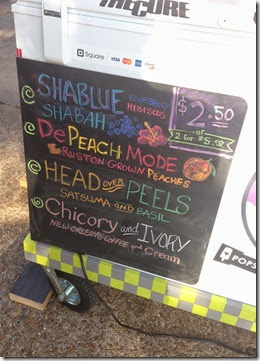 THE CURE
Square VISA
SHABLUE BLUEBERRY
SHABAH HIBISCUS
$2.50
-or-
2 for $5.00
DePEACH MODE
RUSTON GROWN PEACHES
HEAD over PEELS
SATSUMA AND BASIL
Chicory and IVORY
NEW ORLEANS COFFEE and Cream
POPS